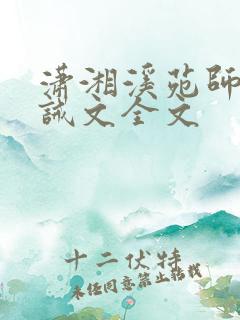 潇湘溪苑師
誡文全文
十二伏特
未经同意禁止转载